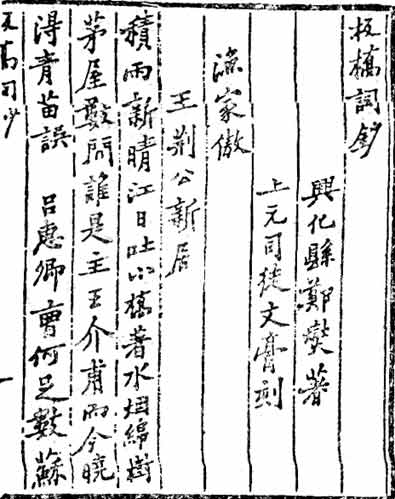 板橋詞鈔
興化縣鄭燮著
上元司徒文膏刻
漁家傲
王荊公新居
積雨新晴江日吐小橋著水烟綿樹
茅屋數間誰是主王介甫而今曉
得青苗誤 呂惠卿曹何足數蘇
板橋詞鈔 一